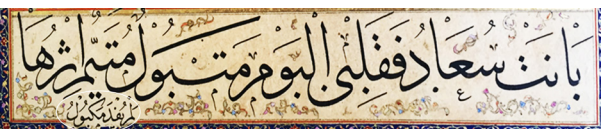 بَانَتْ سُعَادُ فَقَلْبِي الْيَوْمَ مَتْبُولٌ مُتَيَّمٌ إِثْرَهَا
لَمْ يُفْدَ مَكْبُولُ